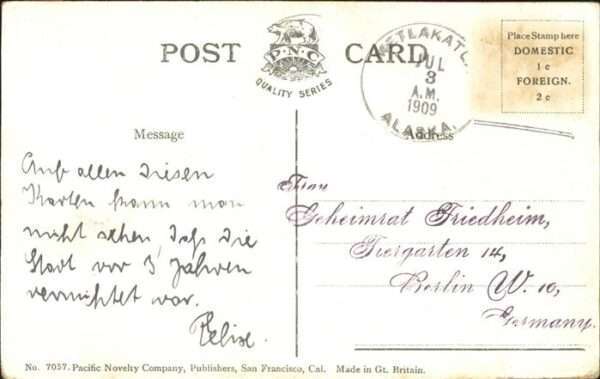 POST CARD
P.N.C
QUALITY SERIES
METLAKATLA
JUL
3
A.M.
1909
ALASKA.
Place Stamp here
DOMESTIC
1 c
FOREIGN.
2 c
Message
Auf allen diesen
Karten kann man
nicht sehen, daß die
Stadt vor 3 Jahren
vernichtet war.
Felix.
Address
Frau
Geheimrat Friedheim,
Tiergarten 14,
Berlin W. 10,
Germany.
No. 7057. Pacific Novelty Company, Publishers, San Francisco, Cal. Made in Gt. Britain.